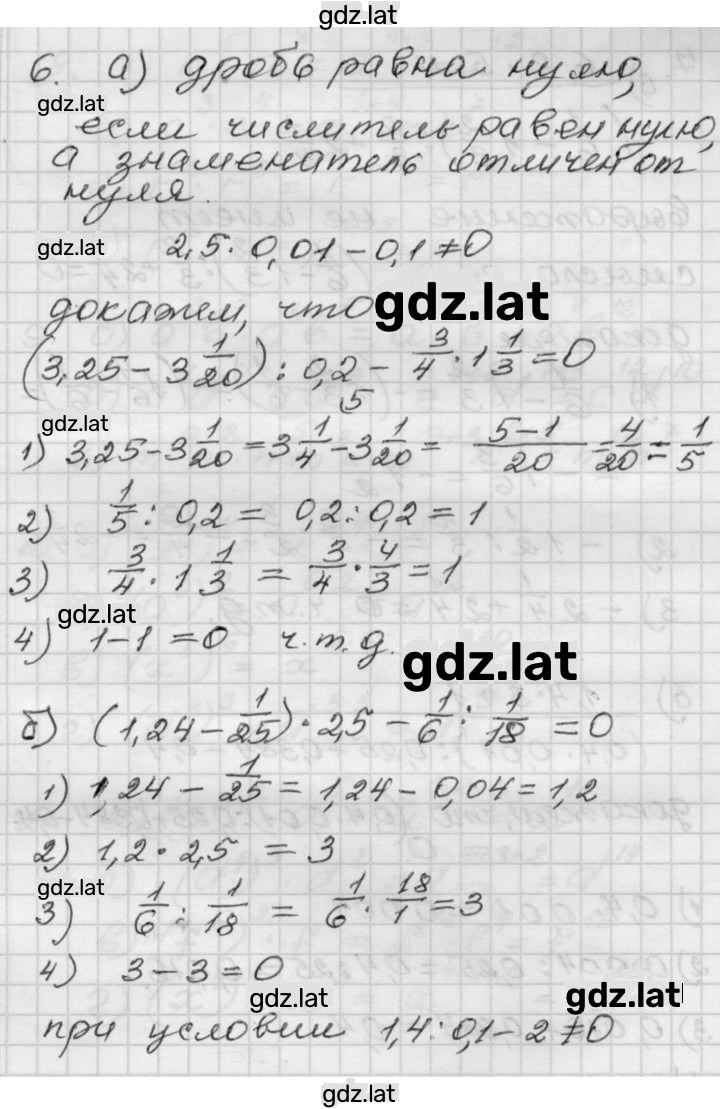 gdz.lat
6. а) дробь равна нулю,
gdz.lat
если числитель равен нулю,
а знаменатель отличен от
нуля.
gdz.lat 2,5 · 0,01 - 0,1 ≠ 0
докажем, что gdz.lat
(3,25 - 3 1/20) : 0,2 - 3/4 · 1 1/3 = 0
gdz.lat 5
1) 3,25 - 3 1/20 = 3 1/4 - 3 1/20 = 5-1/20 = 4/20 = 1/5
2) 1/5 : 0,2 = 0,2 : 0,2 = 1
3) 3/4 · 1 1/3 = 3/4 · 4/3 = 1
gdz.lat
4) 1 - 1 = 0 ч.т.д. gdz.lat
б) (1,24 - 1/25) · 2,5 - 1/6 : 1/18 = 0
1) 1,24 - 1/25 = 1,24 - 0,04 = 1,2
2) 1,2 · 2,5 = 3
gdz.lat
3) 1/6 : 1/18 = 1/6 · 18/1 = 3
4) 3 - 3 = 0
gdz.lat gdz.lat
при условии 1,4 : 0,1 - 2 ≠ 0
gdz.lat